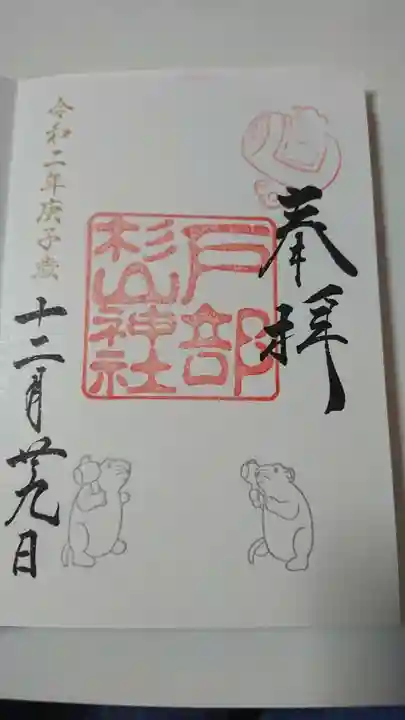 奉拝
戸部
杉山神社
令和二年庚子歳
十二月廿九日